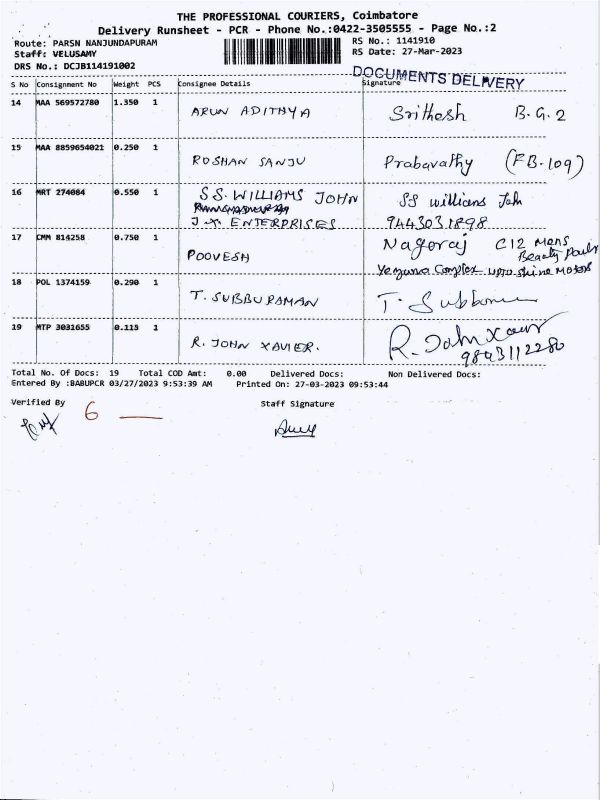 THE PROFESSIONAL COURIERS, Coimbatore
Delivery Runsheet - PCR - Phone No.:0422-3505555 - Page No.:2
Route: PARSN NANJUNDAPURAM
RS No.: 1141910
Staff: VELUSAMY
RS Date: 27-Mar-2023
DRS No.: DCJB114191002
DOCUMENTS DELIVERY
S No Consignment No Weight PCS Consignee Details Signature
14 MAA 569572780 1.350 1 ARUN ADITHYA Srithesh B.G.2
15 MAA 8859654021 0.250 1 ROSHAN SANJU Prabavathy (FB-109)
16 MRT 274084 0.550 1 S.S. WILLIAMS JOHN SS willians Joh
J.X. ENTERPRISES 9443031898
17 CMM 814258 0.750 1 POOVESH Nagoraj C12 Mens
Beauty
Complex shine Motors
18 POL 1374159 0.290 1 T. SUBBURAMAN T. Subbu
19 MTP 3031655 0.113 1 R. JOHN XAVIER. R. John Xavier
9843112280
Total No. Of Docs: 19 Total COD Amt: 0.00 Delivered Docs: Non Delivered Docs:
Entered By :BABUPCR 03/27/2023 9:53:39 AM Printed On: 27-03-2023 09:53:44
Verified By 6 Staff Signature